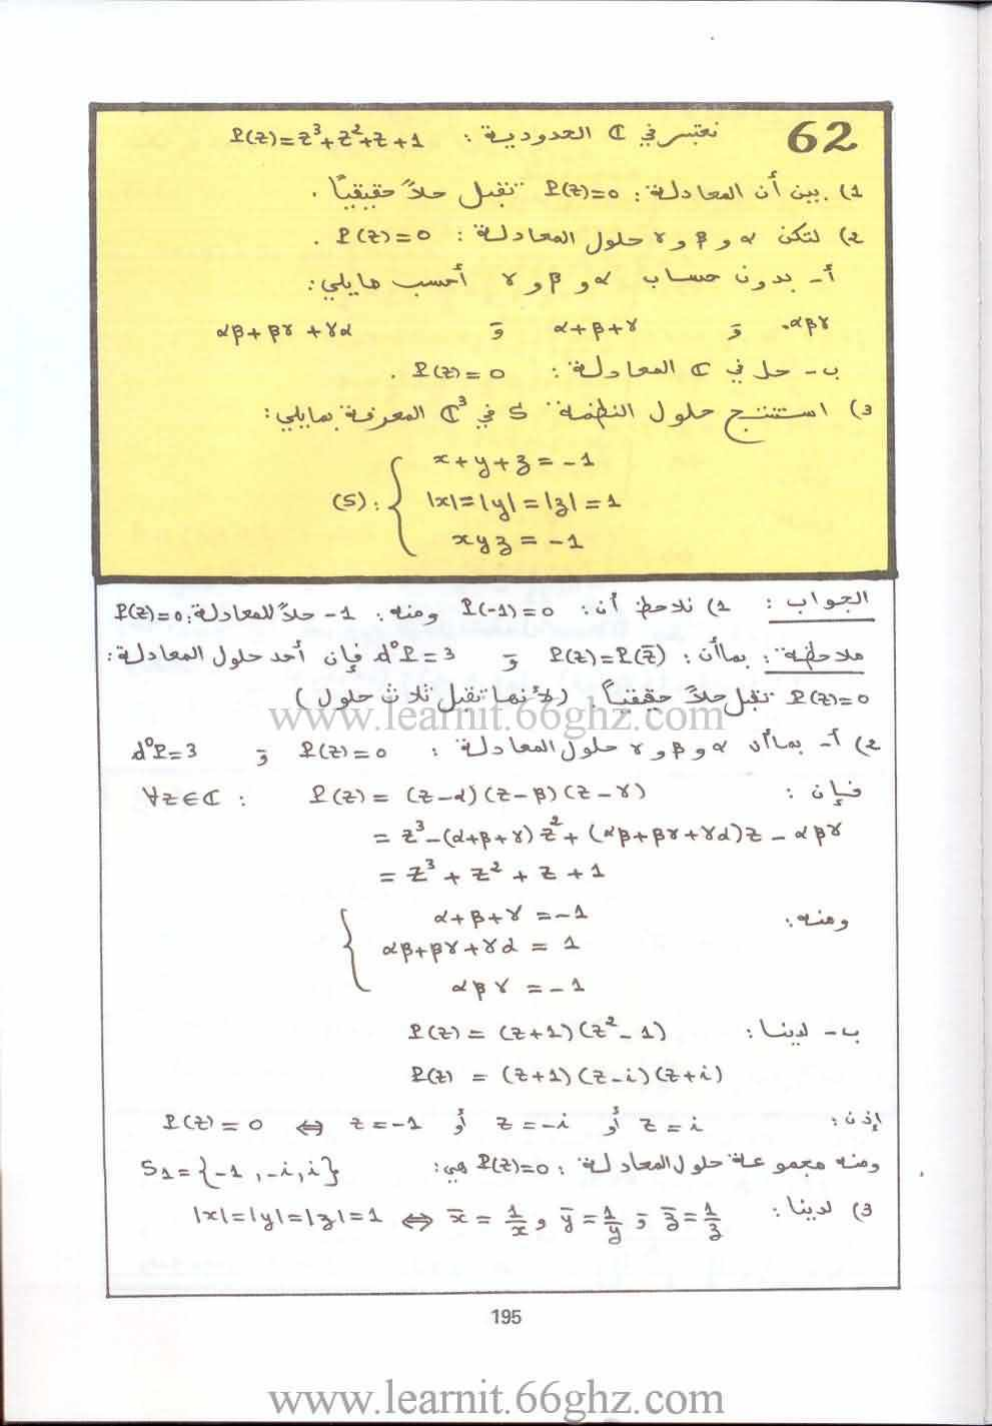 62 نعتبر في ℂ الحدودية : P(z)=z³+z²+z+1
1) بين أن المعادلة : P(z)=0 تقبل حلاً حقيقياً .
2) لتكن α و β و γ حلول المعادلة : P(z)=0 .
أ- بدون حساب α و β و γ أحسب مايلي :
αβγ. وَ α+β+γ وَ αβ+βγ+γα
ب- حل في ℂ المعادلة : P(z)=0 .
3) استنتج حلول النظمة S في ℂ³ المعرفة بمايلي :
x+y+z=-1
(S): { |x|=|y|=|z|=1
xyz=-1
الجواب : 1) نلاحظ أن : P(-1)=0 ومنه : -1 حلاً للمعادلة : P(z)=0
ملاحظة : بماأن : P(z)=P(z̄) وَ d°P=3 فإن أحد حلول المعادلة :
P(z)=0 تقبل حلاً حقيقياً . (لأنها تقبل ثلاث حلول)
www.learnit.66ghz.com
2) أ- بماأن α و β و γ حلول المعادلة : P(z)=0 وَ d°P=3
فإن : P(z) = (z-α)(z-β)(z-γ) ∀z∈ℂ :
= z³-(α+β+γ)z²+(αβ+βγ+γα)z-αβγ
= z³+z²+z+1
ومنه : { α+β+γ=-1
αβ+βγ+γα = 1
αβγ = -1
ب- لدينا : P(z) = (z+1)(z²-1)
P(z) = (z+1)(z-i)(z+i)
إذن : P(z)=0 ⇔ z=-1 أو z=-i أو z=i
ومنه مجموعة حلول المعادلة : P(z)=0 هي : S1={-1,-i,i}
3) لدينا : |x|=|y|=|z|=1 ⇔ x̄=1/x و ȳ=1/y وَ z̄=1/z
195
www.learnit.66ghz.com